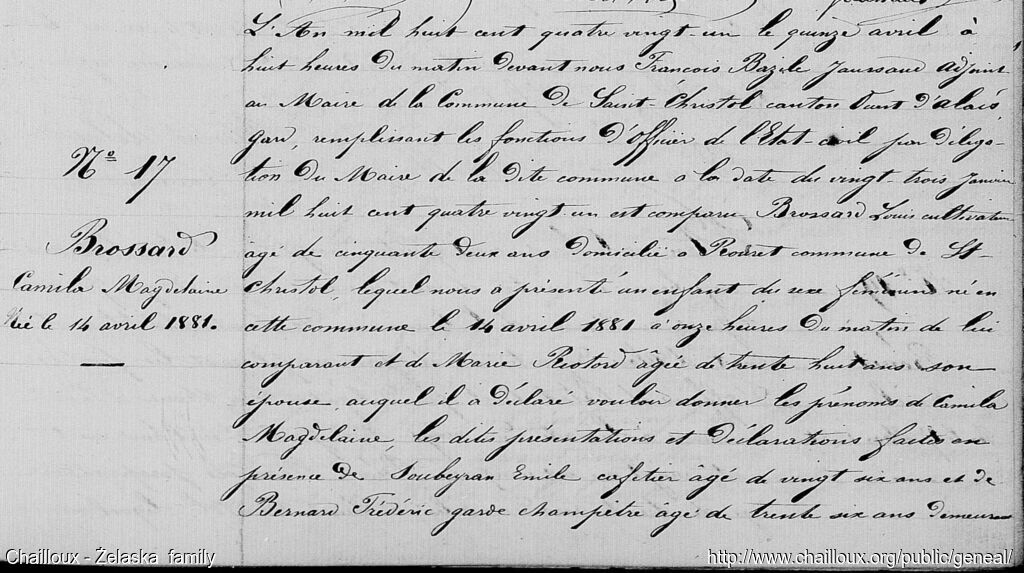 Nº 17
Brossard
Camila Magdelaine
Née le 14 avril 1881.
L'An mil huit cent quatre vingt-un le quinze avril à
huit heures du matin devant nous François Bazile Jaussaud adjoint
au Maire de la Commune de Saint-Christol canton Ouest d'alais
gard, remplissant les fonctions d'Officier de l'Etat-civil par déléga-
tion du Maire de la dite commune a la date du vingt-trois Janvier
mil huit cent quatre vingt-un est comparu Brossard Louis cultivateur
agé de cinquante deux ans domicilié a commune de St-
Christol, lequel nous a présenté un enfant du sexe féminin né en
cette commune le 14 avril 1881 à onze heures du matin de lui
comparant et de Marie Riotord âgée de trente huit ans son
épouse, auquel il a déclaré vouloir donner les prénoms de Camila
Magdelaine les dites présentations et déclarations faites en
présence de Soubeyran Emile cafetier âgé de vingt six ans et de
Bernard Frédéric garde champêtre agé de trente six ans demeurant
Chailloux - Żelaska family
http://www.chailloux.org/public/geneal/